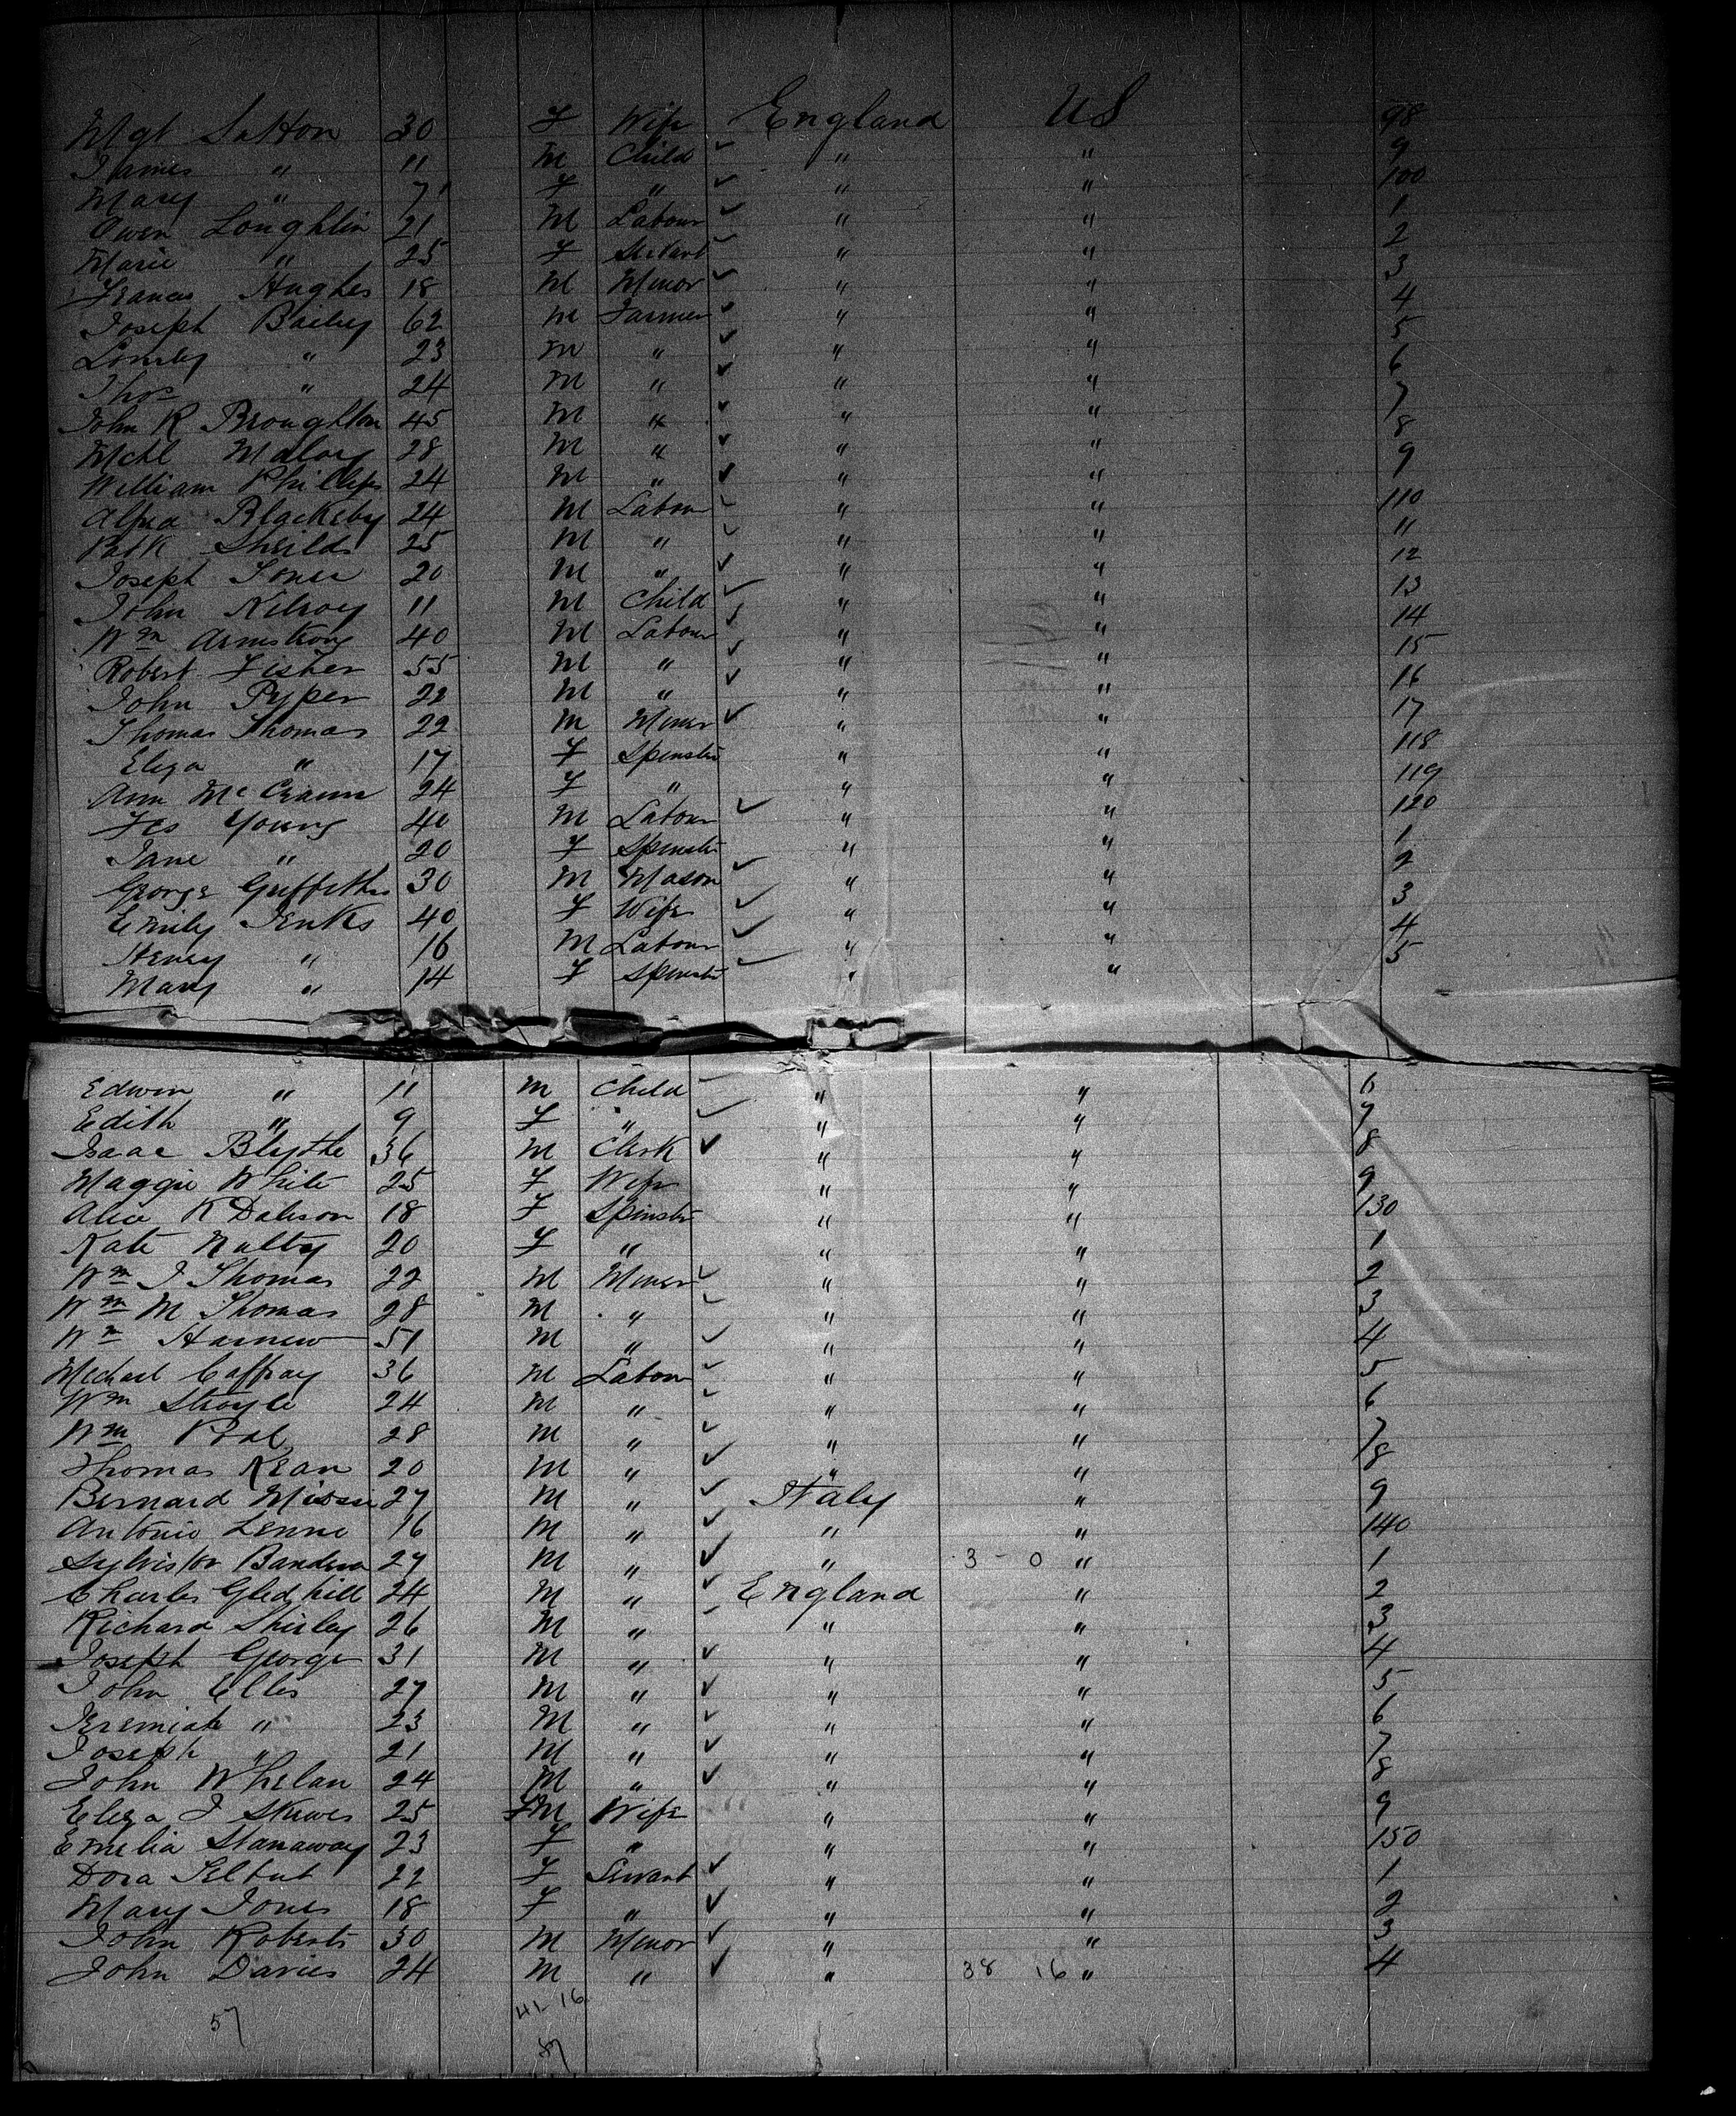 Mgt Sutton 30 F Wife England US 98
James " 11 M Child " " 9
Mary " 7 F " " " 100
Owen Loughlin 21 M Labour " " 1
Marie " 25 F Servant " " 2
Frances Hughes 18 M Minor " " 3
Joseph Bailey 62 M Farmer " " 4
23 M " " " 5
Thos " 24 M " " " 6
John R Broughton 45 M " " " 7
Mchl Maloy 28 M " " " 8
William Phillips 24 M " " " 9
Alfred Blacksby 24 M Labour " " 110
Patk Sheilds 25 M " " " 11
Joseph Jones 20 M " " " 12
John Kilroy 11 M Child " " 13
Wm Armstrong 40 M Labour " " 14
Robert Fisher 55 M " " " 15
John Pyper 22 M " " " 16
Thomas Thomas 22 M Miner " " 17
Eliza " 17 F Spinster " " 118
Ann 24 F " " " 119
Young 40 M Labour " " 120
Jane " 20 F Spinster " " 1
George Griffiths 30 M Mason " " 2
Emily Jenks 40 F Wife " " 3
Henry " 16 M Labour " " 4
Mary " 14 F Spinster " " 5
Edwin " 11 M Child " " 6
Edith " 9 F " " " 7
Isaac Blythe 36 M Clerk " " 8
Maggie White 25 F Wife " " 9
Alice K Daleson 18 F Spinster " " 130
Kate Nalty 20 F " " " 1
Wm J Thomas 22 M Miner " " 2
Wm M Thomas 28 M " " " 3
Wm Harnew 51 M " " " 4
Michael Caffray 36 M Labour " " 5
Wm Stroyle 24 M " " " 6
Wm 28 M " " " 7
Thomas Kean 20 M " " " 8
Bernard 27 M " Italy " 9
Antonio Lenne 16 M " " " 140
Sylvistor Bandera 27 M " " 3 - 0 " 1
Charles Gledhill 24 M " England " 2
Richard Shirley 26 M " " " 3
Joseph George 31 M " " " 4
John Ellis 27 M " " " 5
Jeremiah " 23 M " " " 6
Joseph " 21 M " " " 7
John Whelan 24 M " " " 8
Eliza J Skewes 25 FM Wife " " 9
Emelia Stanaway 23 F " " " 150
Dora 22 F Servant " " 1
Mary Jones 18 F " " " 2
John Roberts 30 M Minor " " 3
John Davies 24 M " " 38 16 " 4
57 41-16
57